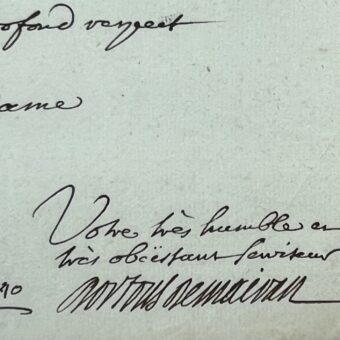 ofond respect
ame
Votre très humble et
très obeïssant serviteur
40 Dortous de mairan